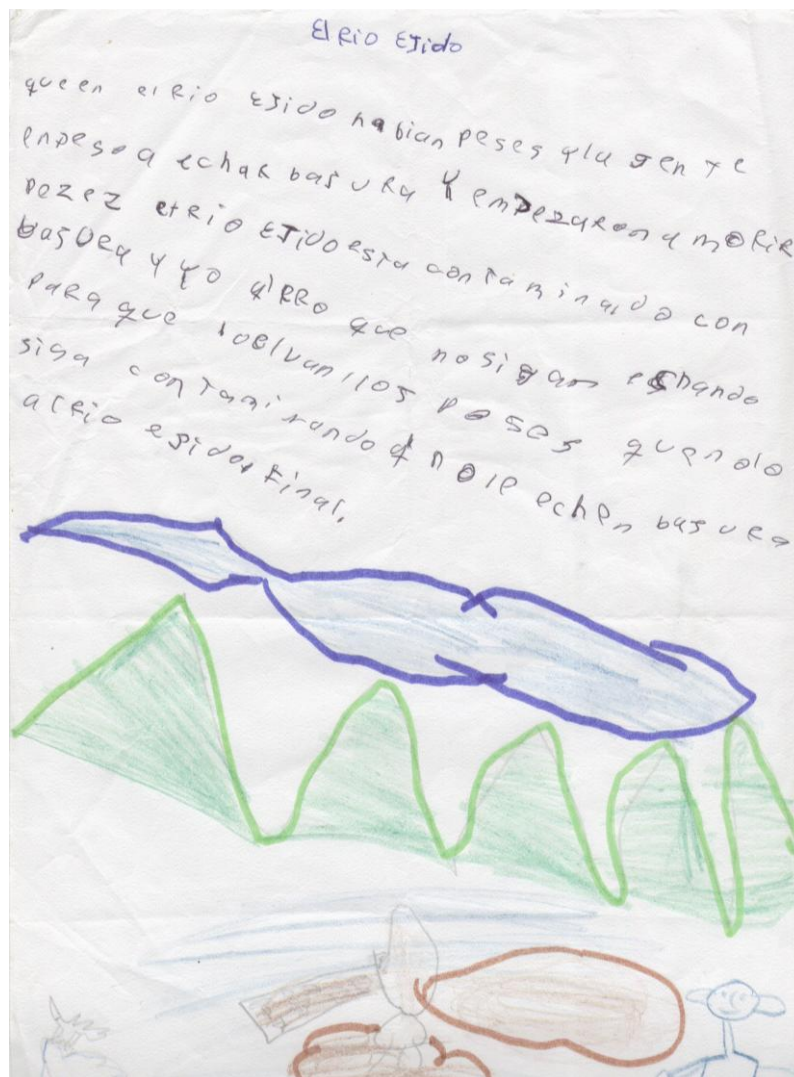 El Rio EJido
queen el Rio EJido habian peses y la Jente
enpeso a echar basura y empezaron a moRiR
pezez el Rio EJido esta contaminado con
basura y yo qirro que no sigan echando
paRa que buelvan llos peses quando
siga contaminando y no le echen basura
al Rio ejido. Final.